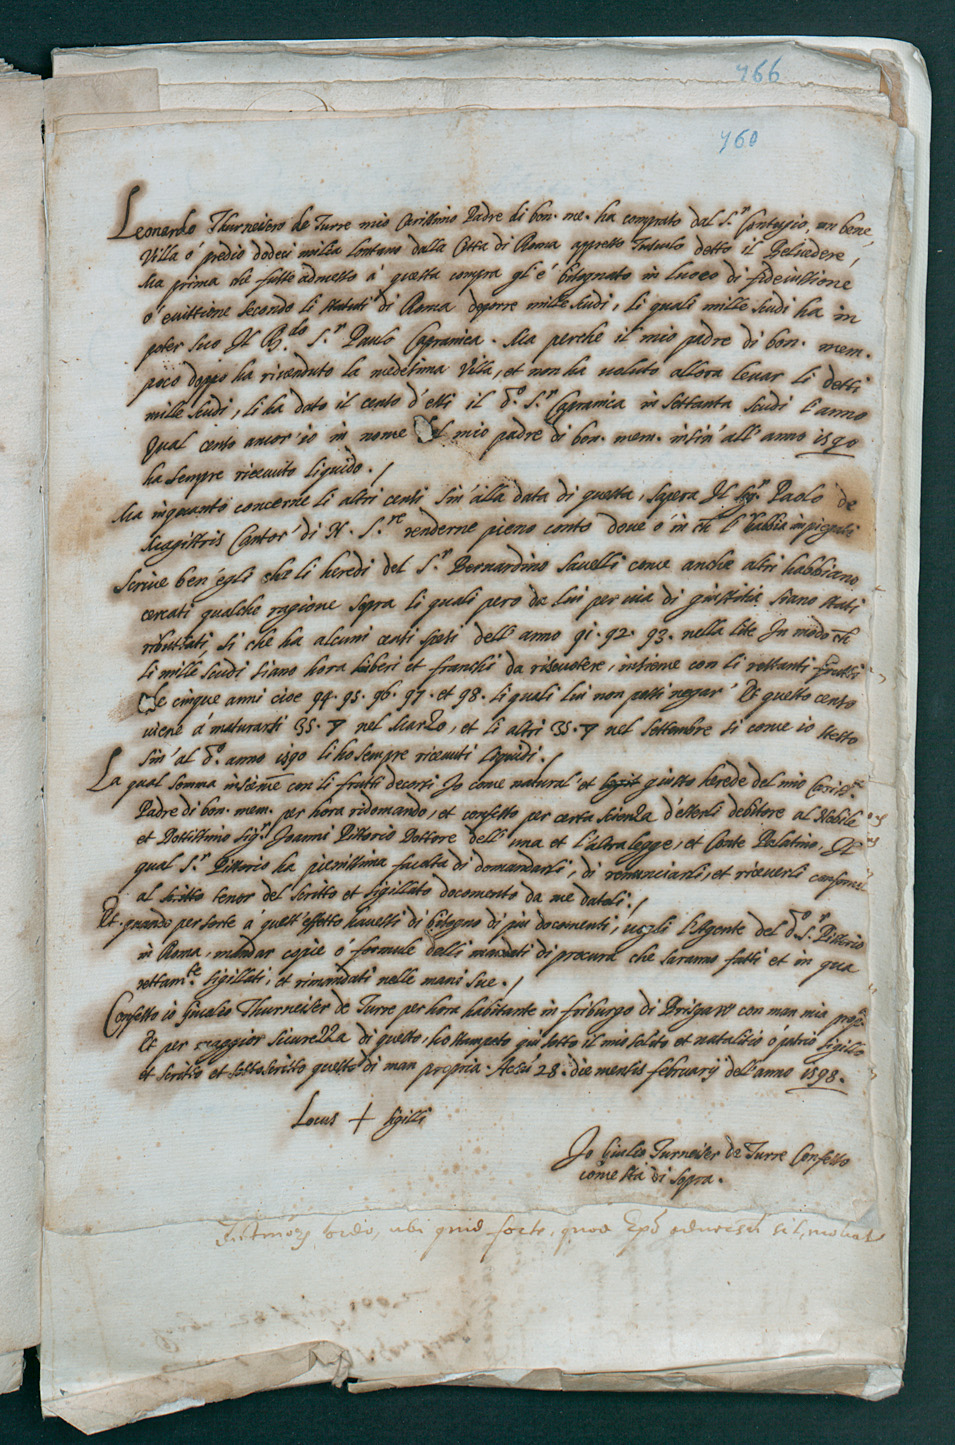 466
460
Leonardo Thurneisero de Turre mio Carissimo Padre di bon. me. ha comprato dal S.r Contugio, un bene,
Villa ó predio dodeci miglia lontano dalla Città di Roma appresso Tusculo detto il Belvedere,
Ma prima che fusse admesso á questa compra gl'é bisognato in luoco di fideiussione
ó evittione secondo li statuti di Roma deporre mille scudi, li quali mille scudi ha in
poter suo Il S.r Paulo Capranica. Ma perche il mio padre di bon. mem.
poco doppo ha rivenduto la medesima Villa, et non ha voluto allora levar li detti
mille scudi, li ha dato il cento d'essi il d.o S.r Capranica in settanta scudi l'anno
Qual cento ancor'io in nome del mio padre di bon. mem. insin'all'anno 1590
ha sempre ricevuto liquido./
Ma inquanto concerne li altri centi sin'alla data di questa, sapera Il Sig.r Paolo de
Magistris Cantor' di N. S.re renderne pieno conto dove ó in ch l'habbia impiegati
Scrive ben'egli che li heredi del S.r Bernardino Savelli come anche altri habbiano
cercati qualche ragione sopra li quali pero da lui per via di giustitia siano stati
ributtati, si che ha alcuni centi spesi dell'anno 91. 92. 93. nella lite In modo ch
li mille scudi siano hora liberi et franchi da riscuotere, insieme con li restanti frutti
de cinque anni cioe 94. 95. 96. 97. et 98. li quali lui non passi negar' Et questo cento
viene á maturarsi 35. ▽ nel Marzo, et li altri 35. ▽ nel settembre si come io stesso
sin'al d.o anno 1590 li ho sempre ricevuti liquidi./
La qual somma insieme con li frutti decorsi Io come natural' et legit giusto herede del mio Cariss.
Padre di bon. mem. per hora ridomando, et confesso per certa scienza d'esserli debitore al Nobile
et Dottissimo Sig.r Joanni Pittorio Dottore dell'una et l'altra legge, et Conte Palatino, Il
qual S.r Pittorio ha pienissima facolta di domandarli, di renunciarli, et riceverli conforme
al scritto tenor del scritto et sigillato documento da me datoli./
Et quando per sorte á quest'effetto havessi di bisogno di piu documenti, vogli l'Agente del d.o S.r Pittorio
in Roma, mandar copie ó formule delli mandati di procura che saranno fatti et in qua
rettam.te sigillati, et rimandati nelle mani sue./
Confesso io Giulio Thurneiser de Turre per hora habitante in friburgo di Brisgaw con man mia
Et per maggior sicurezza di questo, ho stampato qui sotto il mio solito et natalitio ó patrio sigillo
et scritto et sottoscritto questo di man propria. Actu 28. die mensis februarij dell'anno 1598.
Locus + sigilli
Io Giulio Turneiser de Turre Confesso
come sta di sopra.
ubi quid forte, quod